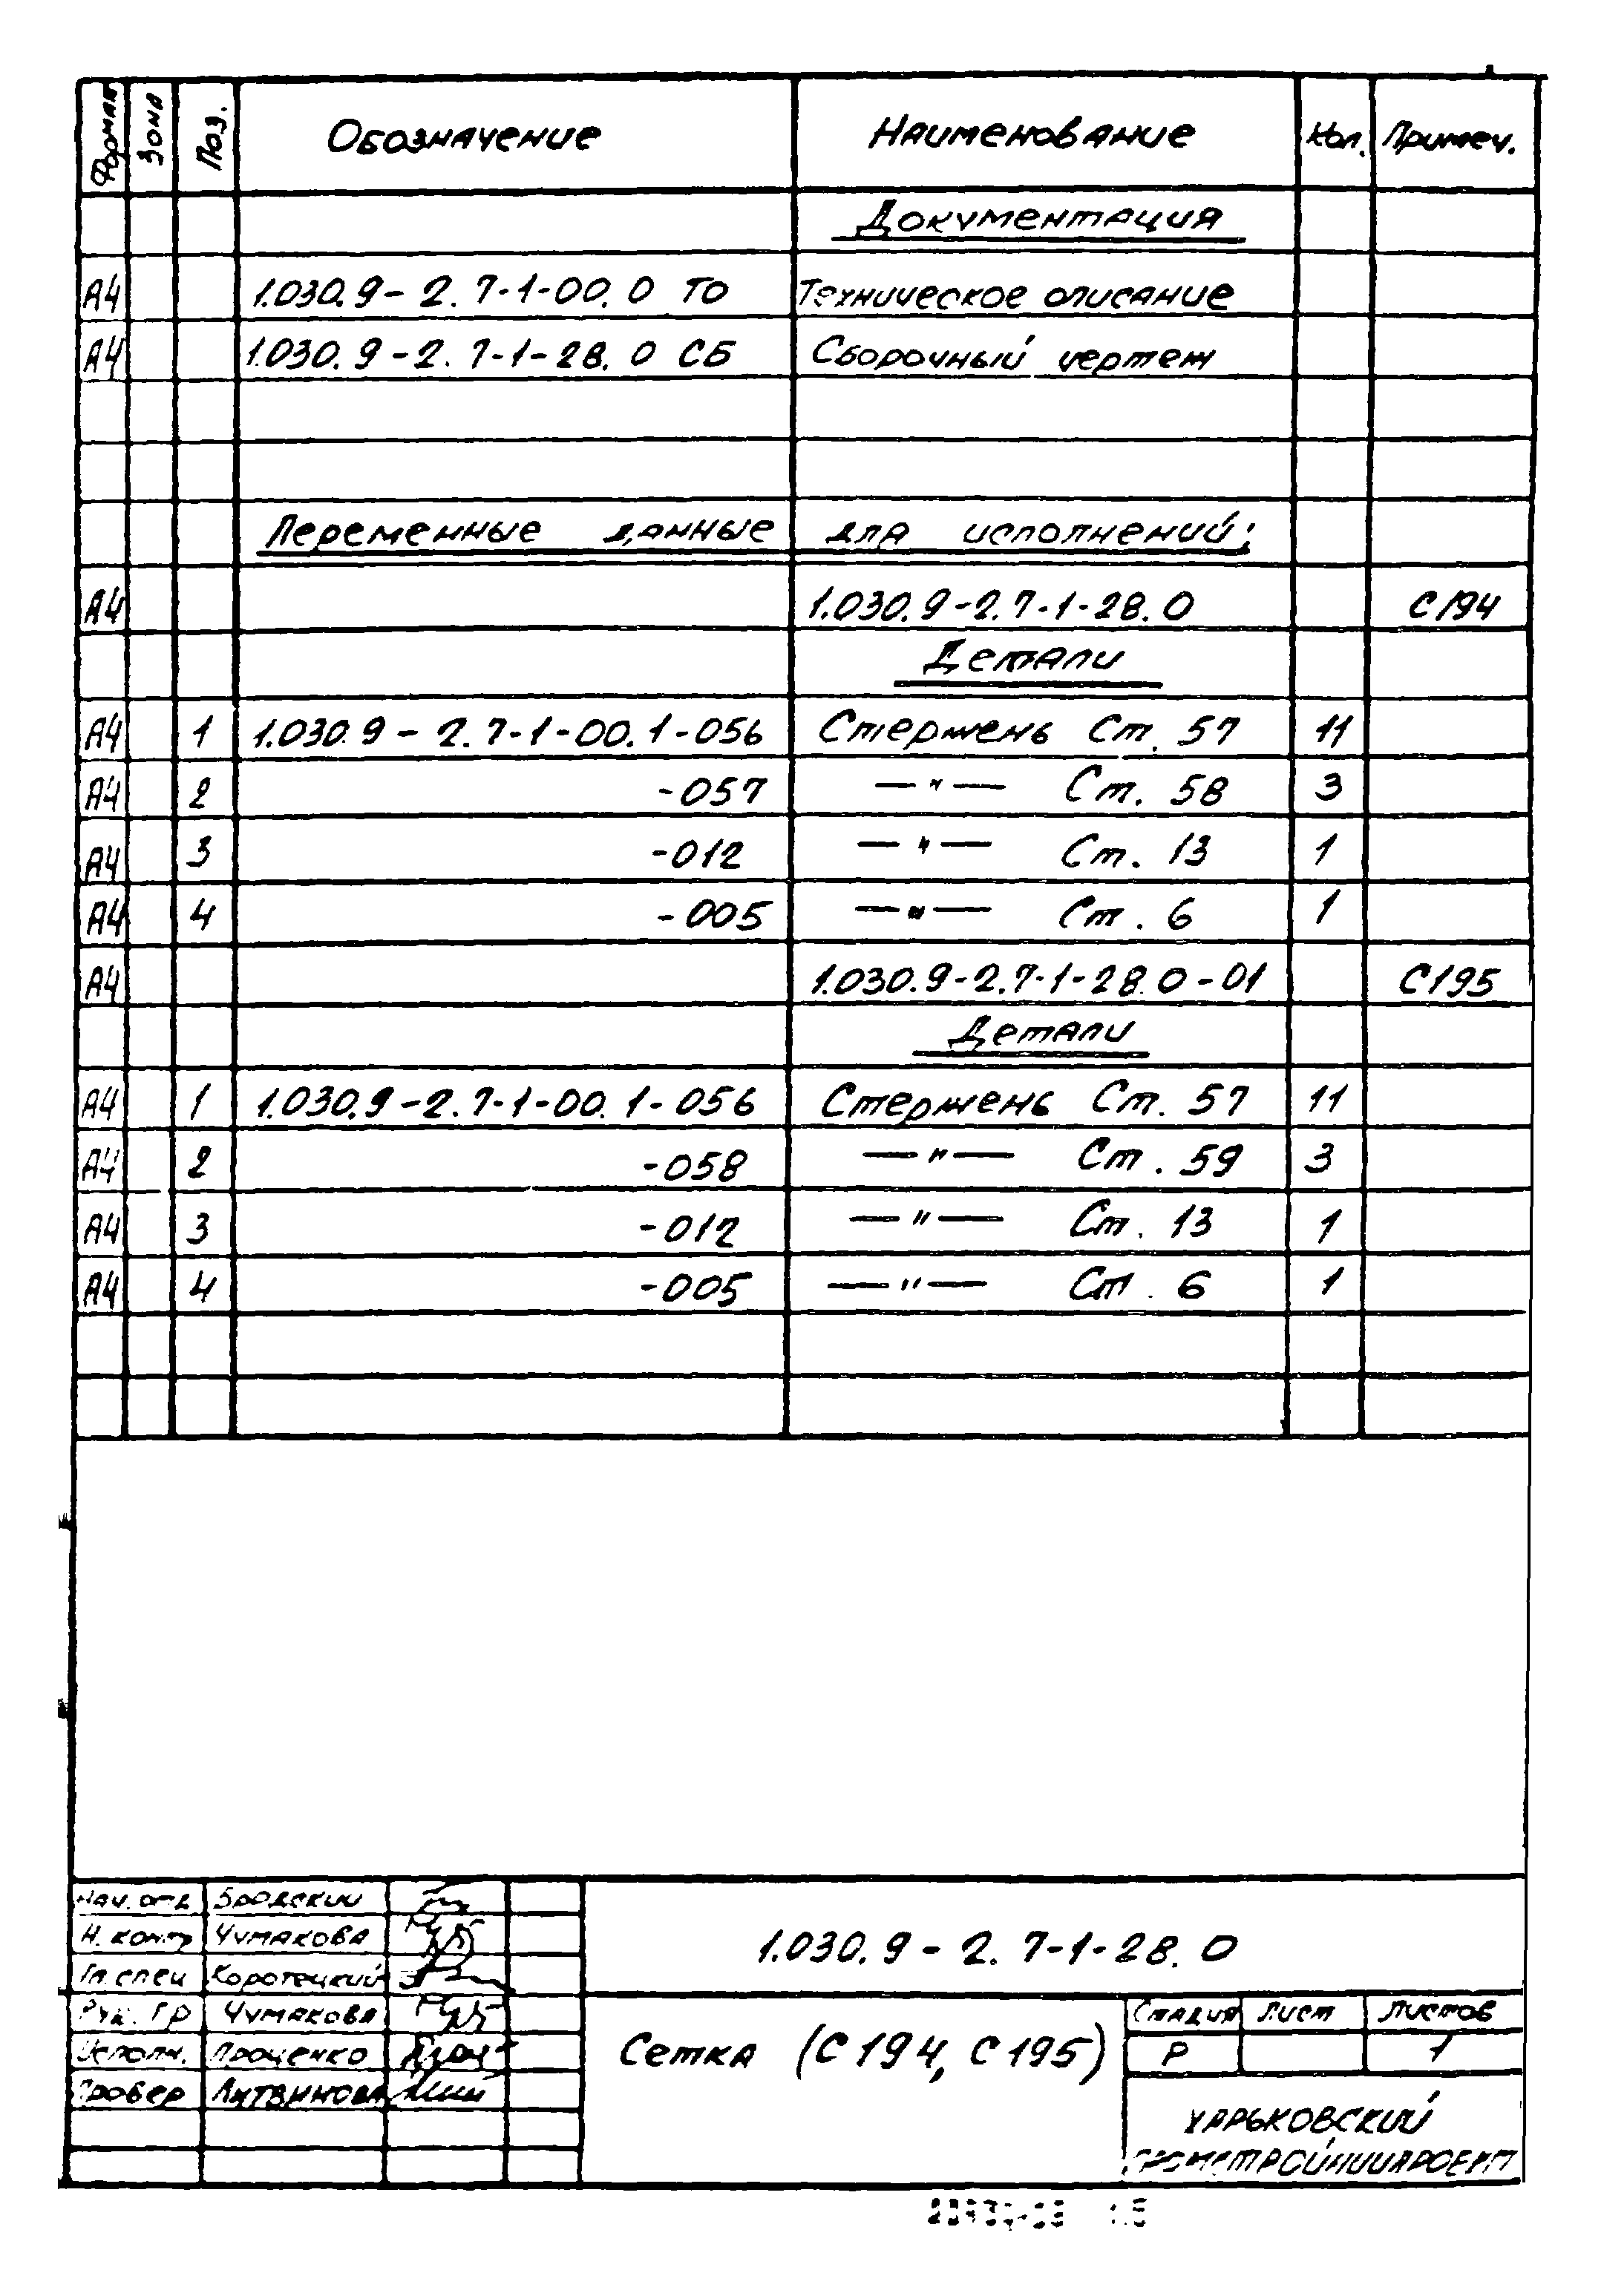 Формат Зона Поз. Обозначение Наименование Кол. Примеч.
Документация
А4 1.030.9-2.7-1-00.0 ТО Техническое описание
А4 1.030.9-2.7-1-28.0 СБ Сборочный чертеж
Переменные данные для исполнений:
А4 1.030.9-2.7-1-28.0 С194
Детали
А4 1 1.030.9-2.7-1-00.1-056 Стержень Ст. 57 11
А4 2 -057 —"— Ст. 58 3
А4 3 -012 —"— Ст. 13 1
А4 4 -005 —"— Ст. 6 1
А4 1.030.9-2.7-1-28.0-01 С195
Детали
А4 1 1.030.9-2.7-1-00.1-056 Стержень Ст. 57 11
А4 2 -058 —"— Ст. 59 3
А4 3 -012 —"— Ст. 13 1
А4 4 -005 —"— Ст. 6 1
Нач. отд Бродский
Н. контр Чумакова
Гл. спец Коротецкий
Рук. гр Чумакова
Исполн. Проценко
Провер Литвинова
1.030.9-2.7-1-28.0
Сетка (С194, С195)
Стадия Лист Листов
Р 1
ХАРЬКОВСКИЙ
ПРОМСТРОЙНИИПРОЕКТ